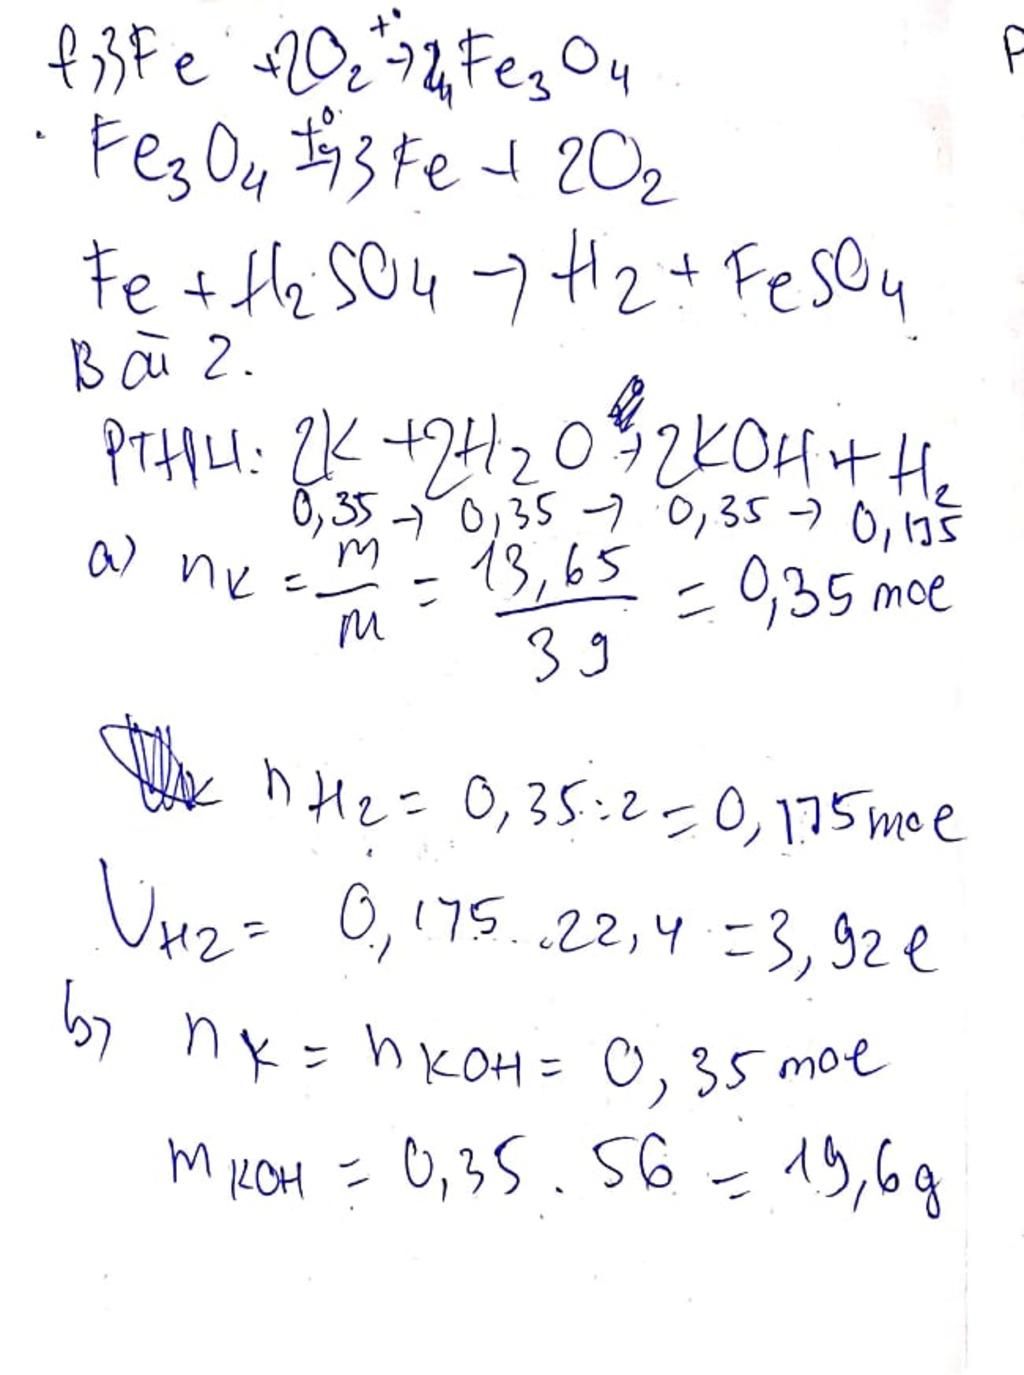 f, 3Fe + 2O2 t° → Fe3O4
Fe3O4 t° → 3Fe + 2O2
Fe + H2SO4 → H2 + FeSO4
Bài 2.
PTHH: 2K + 2H2O → 2KOH + H2
0,35 → 0,35 → 0,35 → 0,175
a) nK = m/M = 13,65/39 = 0,35 mol
nH2 = 0,35 : 2 = 0,175 mol
VH2 = 0,175 . 22,4 = 3,92 l
b) nK = nKOH = 0,35 mol
mKOH = 0,35 . 56 = 19,6g